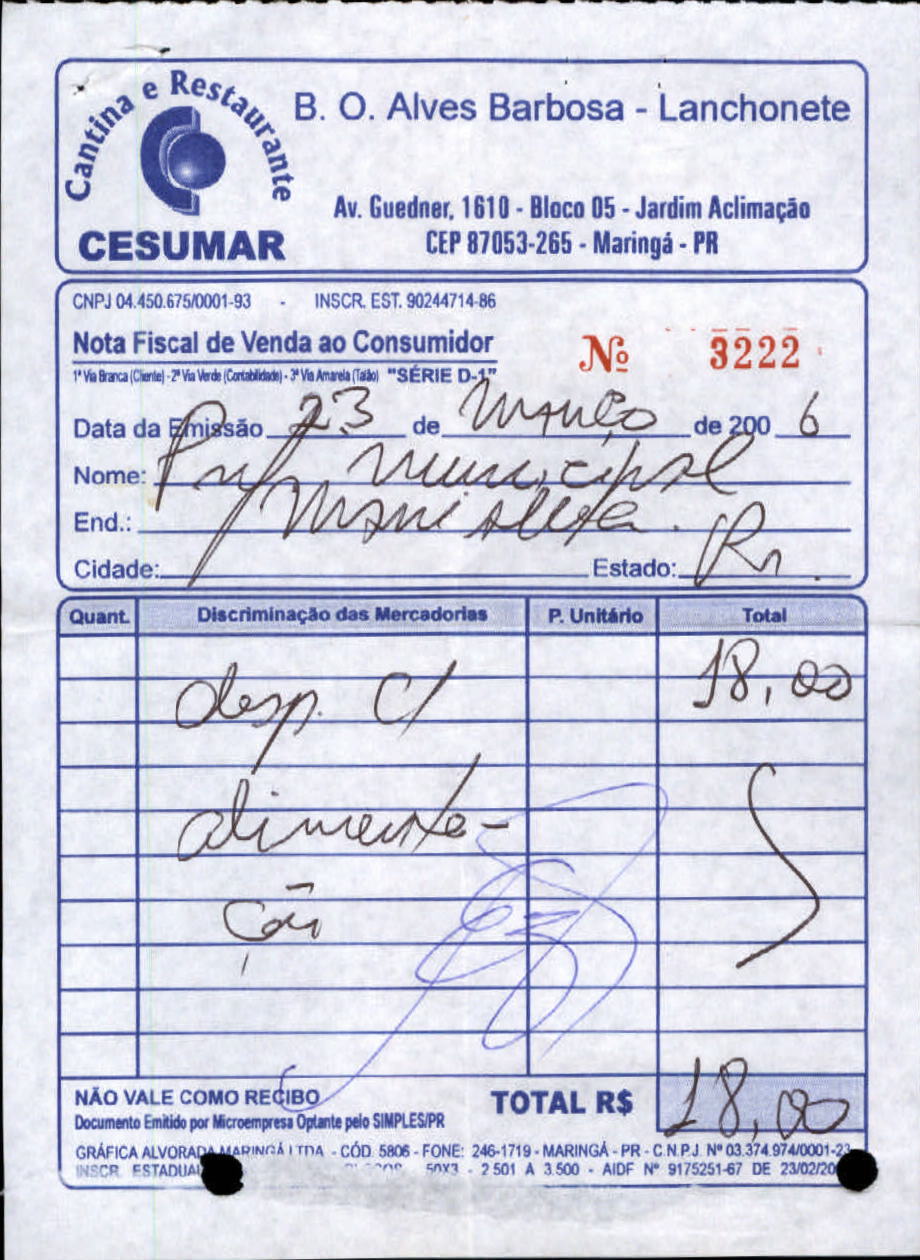 Cantina e Restaurante
CESUMAR
B. O. Alves Barbosa - Lanchonete
Av. Guedner, 1610 - Bloco 05 - Jardim Aclimação
CEP 87053-265 - Maringá - PR
CNPJ 04.450.675/0001-93 - INSCR. EST. 90244714-86
Nota Fiscal de Venda ao Consumidor
Nº 3222
1ª Via Branca (Cliente) - 2ª Via Verde (Contabilidade) - 3ª Via Amarela (Talão) "SÉRIE D-1"
Data da Emissão 23 de Março de 200 6
Nome: Pref municipal
End.: 
Cidade: Estado: Pr.
Quant. Discriminação das Mercadorias P. Unitário Total
desp. c/ 18,00
alimenta-
ção
NÃO VALE COMO RECIBO
Documento Emitido por Microempresa Optante pelo SIMPLES/PR
TOTAL R$ 18,00
GRÁFICA ALVORADA MARINGÁ LTDA - CÓD. 5806 - FONE: 246-1719 - MARINGÁ - PR - C.N.P.J. Nº 03.374.974/0001-23
INSCR. ESTADUAL 50X3 - 2.501 A 3.500 - AIDF Nº 9175251-67 DE 23/02/20